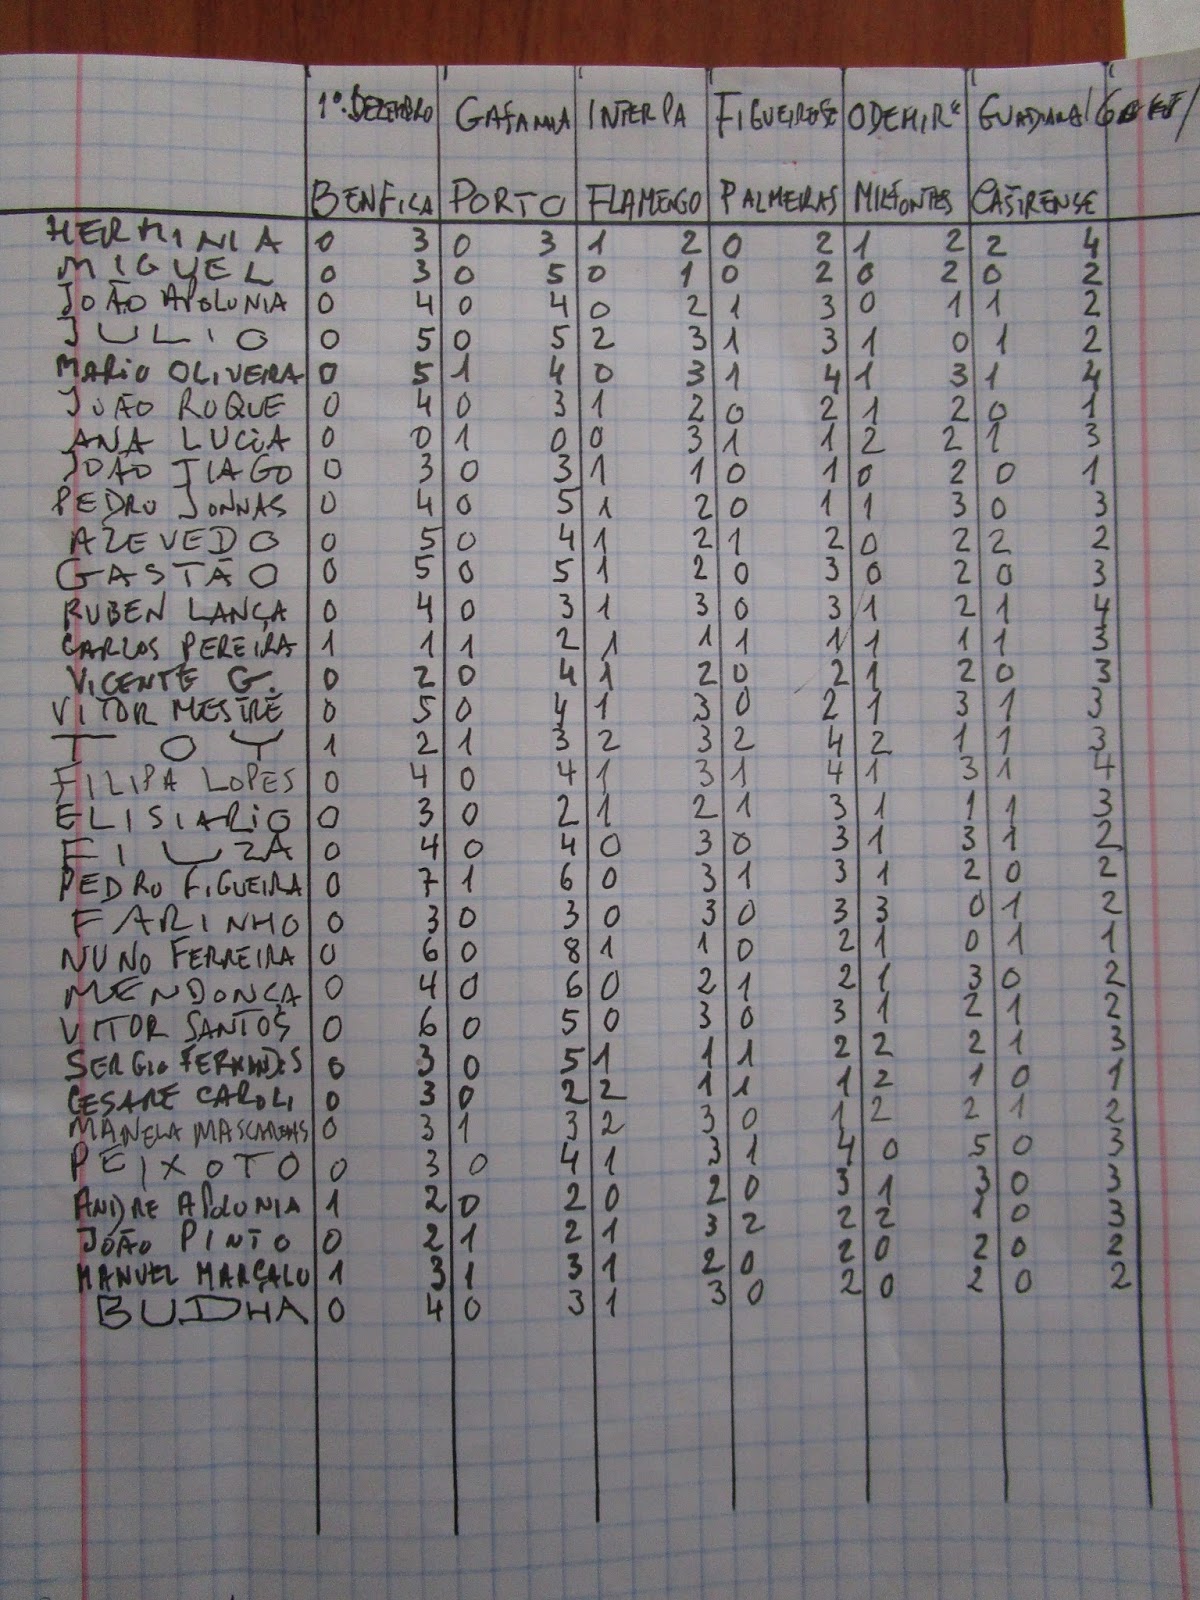 1º. DEZEMBRO GAFANHA INTERPA FIGUEIRESE ODEMIRE GUADIANA
BENFICA PORTO FLAMEGO PALMEIRAS MILFONTES CASTRENSE
HERMINIA 0 3 0 3 1 2 0 2 1 2 2 4
MIGUEL 0 3 0 5 0 1 0 2 0 2 0 2
JOÃO APOLONIA 0 4 0 4 0 2 1 3 0 1 1 2
JULIO 0 5 0 5 2 3 1 3 1 0 1 2
MARIO OLIVEIRA 0 5 1 4 0 3 1 4 1 3 1 4
JOÃO ROQUE 0 4 0 3 1 2 0 2 1 2 0 1
ANA LUCIA 0 0 1 0 0 3 1 1 2 2 1 3
JOÃO TIAGO 0 3 0 3 1 1 0 1 0 2 0 1
PEDRO JONNAS 0 4 0 5 1 2 0 1 1 3 0 3
AZEVEDO 0 5 0 4 1 2 1 2 0 2 2 2
GASTÃO 0 5 0 5 1 2 0 3 0 2 0 3
RUBEN LANÇA 0 4 0 3 1 3 0 3 1 2 1 4
CARLOS PEREIRA 1 1 1 2 1 1 1 1 1 1 1 3
VICENTE G. 0 2 0 4 1 2 0 2 1 2 0 3
VITOR MESTRE 0 5 0 4 1 3 0 2 1 3 1 3
TOY 1 2 1 3 2 3 2 4 2 1 1 3
FILIPA LOPES 0 4 0 4 1 3 1 4 1 3 1 4
ELISIARIO 0 3 0 2 1 2 1 3 1 1 1 3
FIUZA 0 4 0 4 0 3 0 3 1 3 1 2
PEDRO FIGUEIRA 0 7 1 6 0 3 1 3 1 2 0 2
FARINHO 0 3 0 3 0 3 0 3 3 0 1 2
NUNO FERREIRA 0 6 0 8 1 1 0 2 1 0 1 1
MENDONÇA 0 4 0 6 0 2 1 2 1 3 0 2
VITOR SANTOS 0 6 0 5 0 3 0 3 1 2 1 2
SERGIO FERNANDES 0 3 0 5 1 1 1 2 2 2 1 3
CESARE CAROLI 0 3 0 2 2 1 1 1 2 1 0 1
MANELA MASCARENHAS 0 3 1 3 2 3 0 1 2 2 1 2
PEIXOTO 0 3 0 4 1 3 1 4 0 5 0 3
ANDRE APOLONIA 1 2 0 2 0 2 0 3 1 3 0 3
JOÃO PINTO 0 2 1 2 1 3 2 2 2 1 0 3
MANUEL MARÇALO 1 3 1 3 1 2 0 2 0 2 0 2
BUDHA 0 4 0 3 1 3 0 2 0 2 0 2